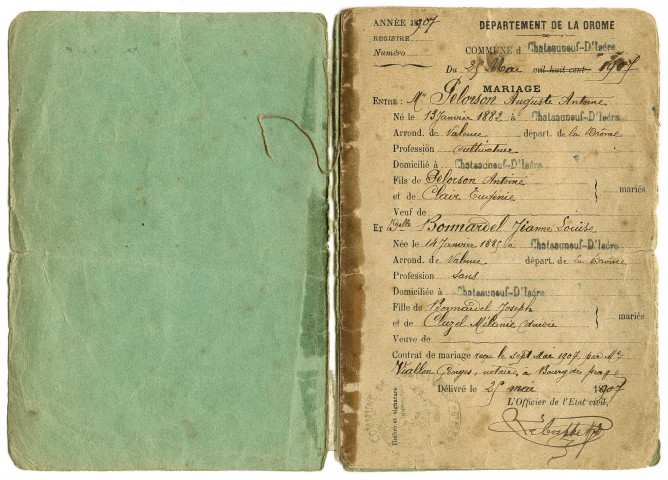 ANNÉE 1907
DÉPARTEMENT DE LA DROME
REGISTRE
Numéro
COMMUNE d Chateauneuf-D'Isére
Du 25 Mai mil huit cent 1907
MARIAGE
ENTRE : Mr Pélorson Auguste Antoine
Né le 13 Janvier 1882 à Chateauneuf-D'Isére
Arrond. de Valence départ. de la Drôme
Profession cultivateur
Domicilié à Chateauneuf-D'Isére
Fils de Pélorson Antoine
et de Clair Eugénie
mariés
Veuf de
ET Melle Bonnardel Jeanne Louise
Née le 14 Janvier 1885 à Chateauneuf-D'Isére
Arrond. de Valence départ. de la Drôme
Profession sans
Domiciliée à Chateauneuf-D'Isére
Fille de Bonnardel Joseph
et de Cluzel Mélanie
mariés
Veuve de
Contrat de mariage reçu le sept Mai 1907, par Me
Viallon Georges, notaire, à Bourg de péage
Délivré le 25 mai 1907
L'Officier de l'Etat civil,
Timbre et signature